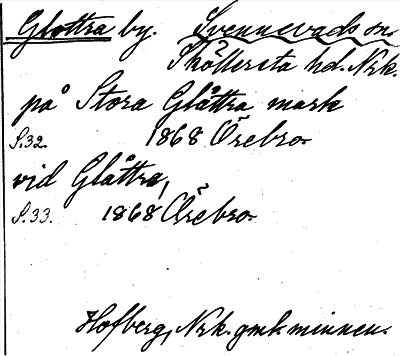 Glottra by. Svennevads sn.
Sköllersta hd. Nrk.
på Stora Glåttra mark
S.32. 1868 Örebro.
vid Glåttra,
S.33. 1868 Örebro.
Hofberg, Nrk. gmk minnen.